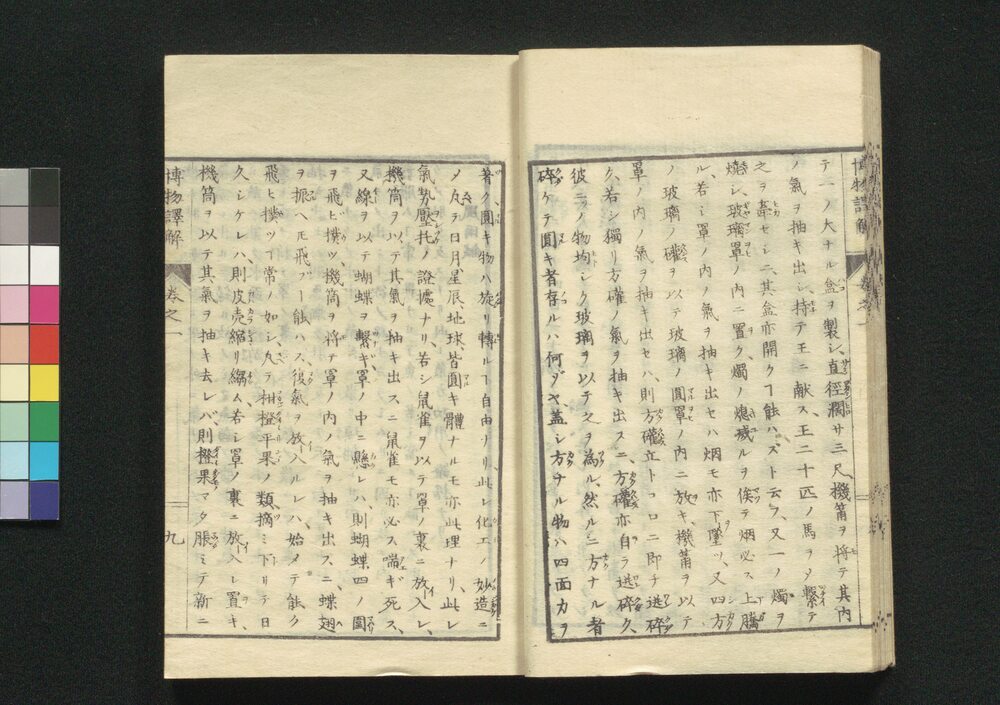 テ一ノ大ナル盒ヲ製シ、直徑濶サ三尺、機筩ヲ將テ其內
ノ氣ヲ抽キ出シ、持テ王ニ獻ス、王二十匹ノ馬ヲメ繫テ
之ヲ牽セシニ、其盒亦開クヿ能ハズト云フ、又一ノ燭ヲ
燒シ、玻璃單ノ內ニ置ク、燭ノ熄滅ルヲ俟テ烟必ス上騰
ル、若シ罩ノ內ノ氣ヲ抽キ出セハ烟モ亦下墜ツ、又四方
ノ玻璃ノ確ヲ以テ玻璃ノ圓罩ノ內ニ放キ、機筩ヲ以テ
罩ノ內ノ氣ヲ抽キ出セハ、則方確立トコロニ即チ逃碎
ク、若シ獨リ方確ノ氣ヲ抽キ出スニ、方確亦自ラ逃碎ク、
彼二ツノ物均シク玻璃ヲ以テ之ヲ為ル、然ルニ方ナル者
碎ケテ圓キ者存ルハ何ゾヤ蓋シ方ナル物ハ四面力ヲ
著ク圓キ物ハ旋リ轉ルヿ自由リリ此レ化工ノ妙造ニ
メ凡テ日月星辰地球、皆圓キ體ナルモ亦此理ナリ、此レ
氣勢壓托ノ證據ナリ、若シ鼠雀ヲ以テ罩ノ裏ニ放入レ、
機筒ヲ以テ其氣ヲ抽キ出スニ鼠雀モ亦必ス喘ギ死ス、
又線ヲ以テ蝴蝶ヲ繫ギ、罩ノ中ニ懸レハ、則蝴蝶四ノ圍
ヲ飛ヒ撲ツ、機筒ヲ將テ罩ノ內ノ氣ヲ抽キ出スニ、蝶翅
ヲ振ヘ𪜈飛ブヿ能ハス、復氣ヲ放入ルレハ、始メテ能ク
飛ヒ撲ツヿ常ノ如シ、又テ柑橙平果ノ類摘ミ下リテ日
久シケレハ、則皮壳縮リ縐ム、若シ罩ノ裏ニ放入レ置キ、
機筒ヲ以テ其氣ヲ抽キ去レバ、則橙果マタ脹ミテ新ニ
博物譯解 卷之一 九